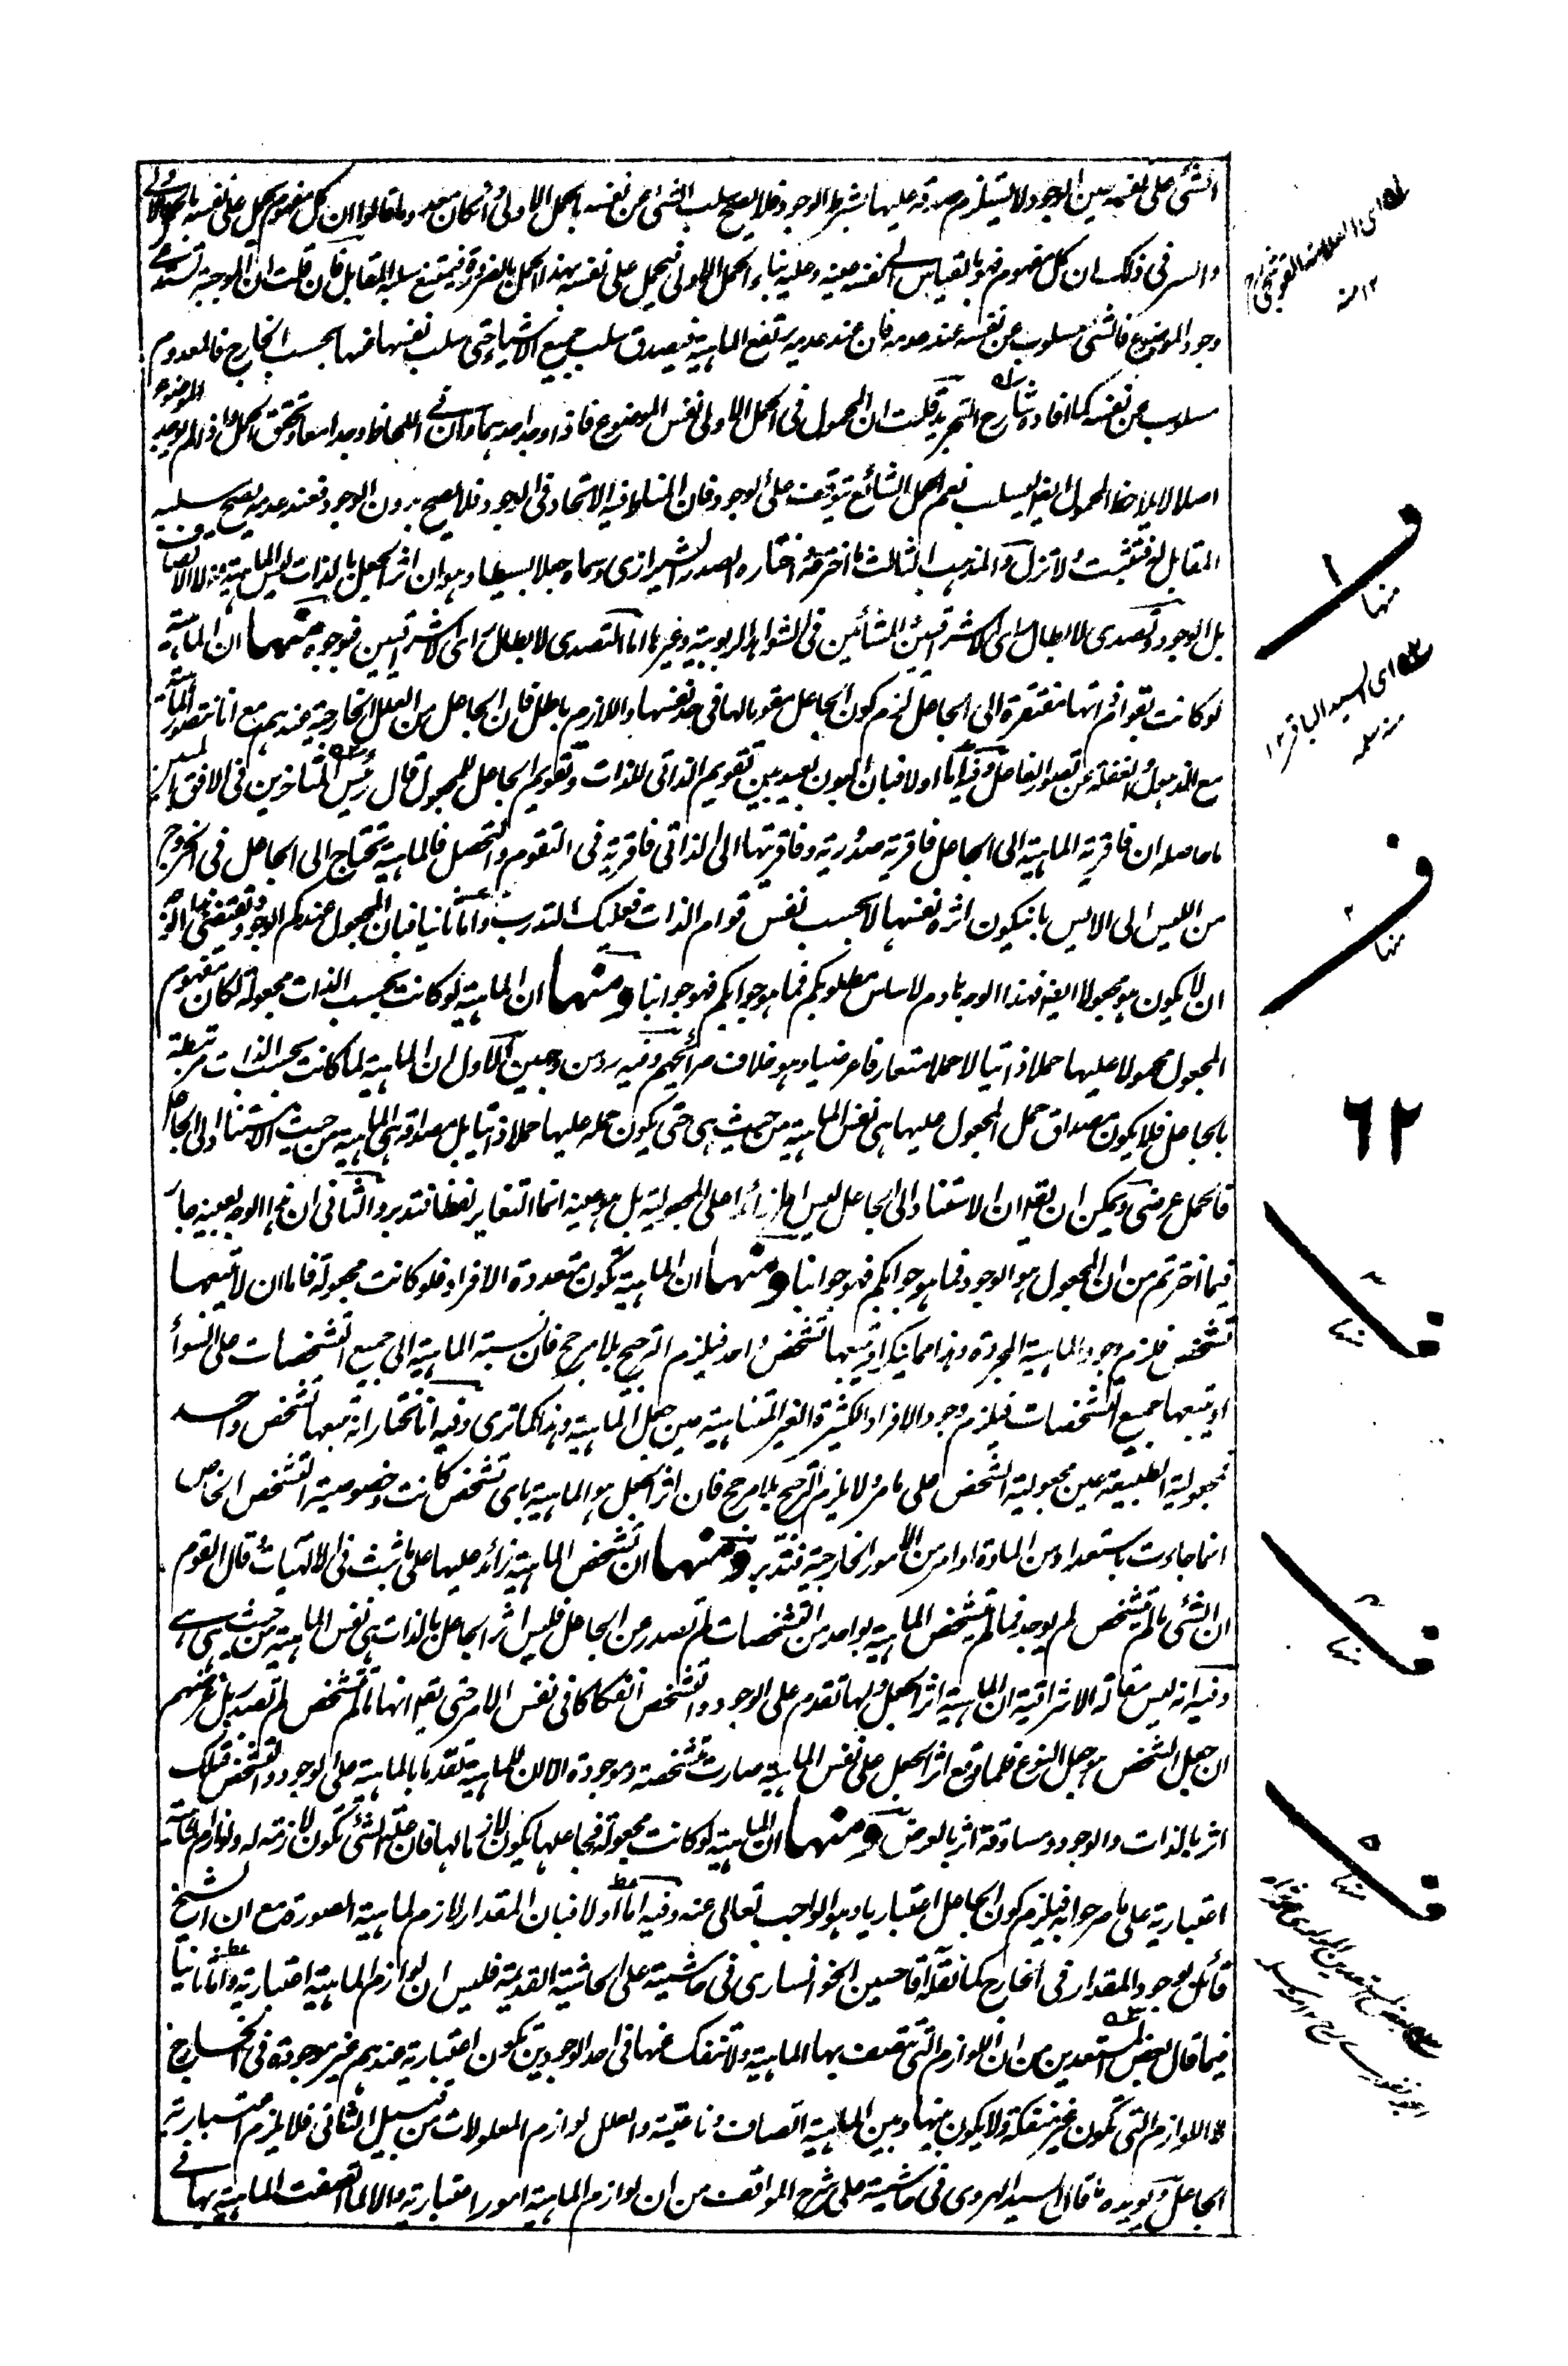 الشئ على نفسه حين الوجود لا يستلزم صدقه عليها بشرط الوجود فلا يصح سلب الشئ عن نفسه بالحمل الاولى وان كان معدوما قالوا ان كل مفهوم يحمل على نفسه بالحمل الاولى
والسر فى ذلك ان كل مفهوم فهو بالقياس الى نفسه عينه وعليه بناء الحمل الاولى فيحمل على نفسه بهذا الحمل بالضرورة فيمتنع سلبه المقابل فان قلت ان الموجبة تستدعى
وجود الموضوع فالشئ مسلوب عن نفسه عند عدمه فان عند عدمه يرتفع الماهية فيصدق سلب جميع الاشياء حتى سلب نفسها عنها بحسب الخارج فالمعدوم
مسلوب عن نفسه كما افاده شارح التجريد قلت ان المحمول فى الحمل الاولى نفس الموضوع فاذا وجد احدهما وان فى اللحاظ وجدا معا وتحقق الحمل واذا لم يوجد الموضوع
اصلا لا يلاحظ المحمول ايضا ليسلب نعم الحمل الشائع يتوقف على الوجود فان المناط فيه الاتحاد فى الوجود فلا يصح بدون الوجود فعند عدمه يصح سلبه
المقابل له فتثبت ولا تزل والمذهب الثالث ما اخترعه واختاره الصدر الشيرازى وسماه جعلا بسيطا وهو ان اثر الجعل بالذات ليس الماهية ولا الاتصاف
بل الوجود وتصدى لابطال رأى الاشراقيين والمشائين فى الشواهد الربوبية وغيرها اما التصدى لابطال رأى الاشراقيين فبوجوه منها ان الماهية
لو كانت بقوام ذاتها مفتقرة الى الجاعل لزم كون الجاعل مقوما لها فى حد نفسها واللازم باطل فان الجاعل من العلل الخارجية عندهم مع انا نتصور الماهية
مع الذهول والغفلة عن تصور الفاعل وفيه اما اولا فبان البون بعيد بين تقويم الذاتى للذات وتقويم الجاعل للمجعول قال رئيس المتاخرين فى الافق المبين
ما حاصله ان فاقرية الماهية الى الجاعل فاقرية صدورية وفاقريتها الى الذاتى فاقرية فى التقوم والتحصل فالماهية تحتاج الى الجاعل فى الخروج
من الليس الى الايس بان يكون اثره نفسها لا بحسب نفس قوام الذات فعليك التدرب واما ثانيا فبان المجعول عندكم الوجود
ان لا يكون هو مجعولا ايضا فهذا الوجه هادم لاساس مطلوبكم فما هو جوابكم فهو جوابنا ومنها ان الماهية لو كانت بحسب الذات مجعولة لكان مفهوم
المجعول محمولا عليها حملا ذاتيا لا حملا متعارفا عرضيا وهو خلاف صرائحهم وفيه رد من وجهين الاول ان الماهية لما كانت بحسب الذات مرتبطة
بالجاعل فلا يكون مصداق حمل المجعول عليها هى نفس الماهية من حيث هى حتى يكون حمله عليها حملا ذاتيا بل مصداقه هى الماهية من حيث الاستناد الى الجاعل
فالحمل عرضى ويمكن ان يقال ان الاستناد الى الجاعل ليس امرا زائدا على المجعولية بل هو عينه انما التغاير لفظا فتدبر والثانى ان هذا الوجه بعينه جار
فيما اخترتم من ان المجعول هو الوجود فما هو جوابكم فهو جوابنا ومنها ان الماهية تكون متعددة الافراد فلو كانت مجعولة فاما ان لا تتبعها
تشخص فلزم وجود الماهية المجردة وهذا مما ينكر او تتبعها تشخص واحد فيلزم الترجيح بلا مرجح فان نسبة الماهية الى جميع التشخصات على السواء
او تتبعها جميع التشخصات فيلزم وجود الافراد الكثيرة الغير المتناهية حين جعل الماهية وهذا كما ترى وفيه انا نختار انه تتبعها تشخص واحد
فمجعولية الطبيعة عين مجعولية الشخص على ما مر ولا يلزم الترجيح بلا مرجح فان اثر الجعل هو الماهية باى تشخص كانت وخصوصية التشخص الخاص
انما جاءت باستعداد من المادة او امر من الامور الخارجية فتدبر ومنها ان تشخص الماهية زائد عليها على ما ثبت فى الالهيات قال القوم
ان الشئ ما لم يتشخص لم يوجد فما لم يتشخص الماهية بواحد من التشخصات لم تصدر عن الجاعل فليس اثر الجاعل بالذات هى نفس الماهية من حيث هى هى
وفيه انه ليس مقالة الاشراقية ان الماهية اثر الجعل ولها تقدم على الوجود والتشخص انفكاكا فى نفس الامر حتى يقال انها ما لم تتشخص لم تصدر بل غرضهم
ان جعل الشخص هو جعل النوع فلما وقع اثر الجعل على نفس الماهية صارت متشخصة وموجودة الا ان للماهية تقدما بالماهية على الوجود والتشخص فتلك
اثر بالذات والوجود ومساوقة اثر بالعرض ومنها ان الماهية لو كانت مجعولة فجاعلها يكون لازما لها فان علة الشئ تكون لازمة له ولوازم الماهية
اعتبارية على ما صرحوا به فيلزم كون الجاعل اعتباريا وهو الواجب تعالى عنه وفيه اما اولا فبان المقدار لازم لماهية الصورة مع ان الشيخ
قائل بوجود المقدار فى الخارج كما نقله اقا حسين الخوانسارى فى حاشيته على الحاشية القديمة فليس ان لوازم الماهية اعتبارية واما ثانيا
فبما قال بعض المستعدين من ان اللوازم التى تتصف بها الماهية ولا تنفك عنها فى احد الوجودين تكون اعتبارية عندهم غير موجودة فى الخارج
لا اللوازم التى تكون غير منفكة ولا يكون بينها وبين الماهية اتصاف وناعتية والعلل لوازم المعلولات من قبيل الثانى فلا يلزم اعتبارية
الجاعل ويويده ما قال السيد الهروى فى حاشيته على شرح المواقف من ان لوازم الماهية امور اعتبارية والا لما اتصفت الماهية بها فى
اى العلامة القوشجى
١٢ منه
ف ١
منها
اى السيد الباقر ١٢
منه سلمه
ف ٢
منها
٦٢
ف
منها
ف
منها
ف ٥
منها